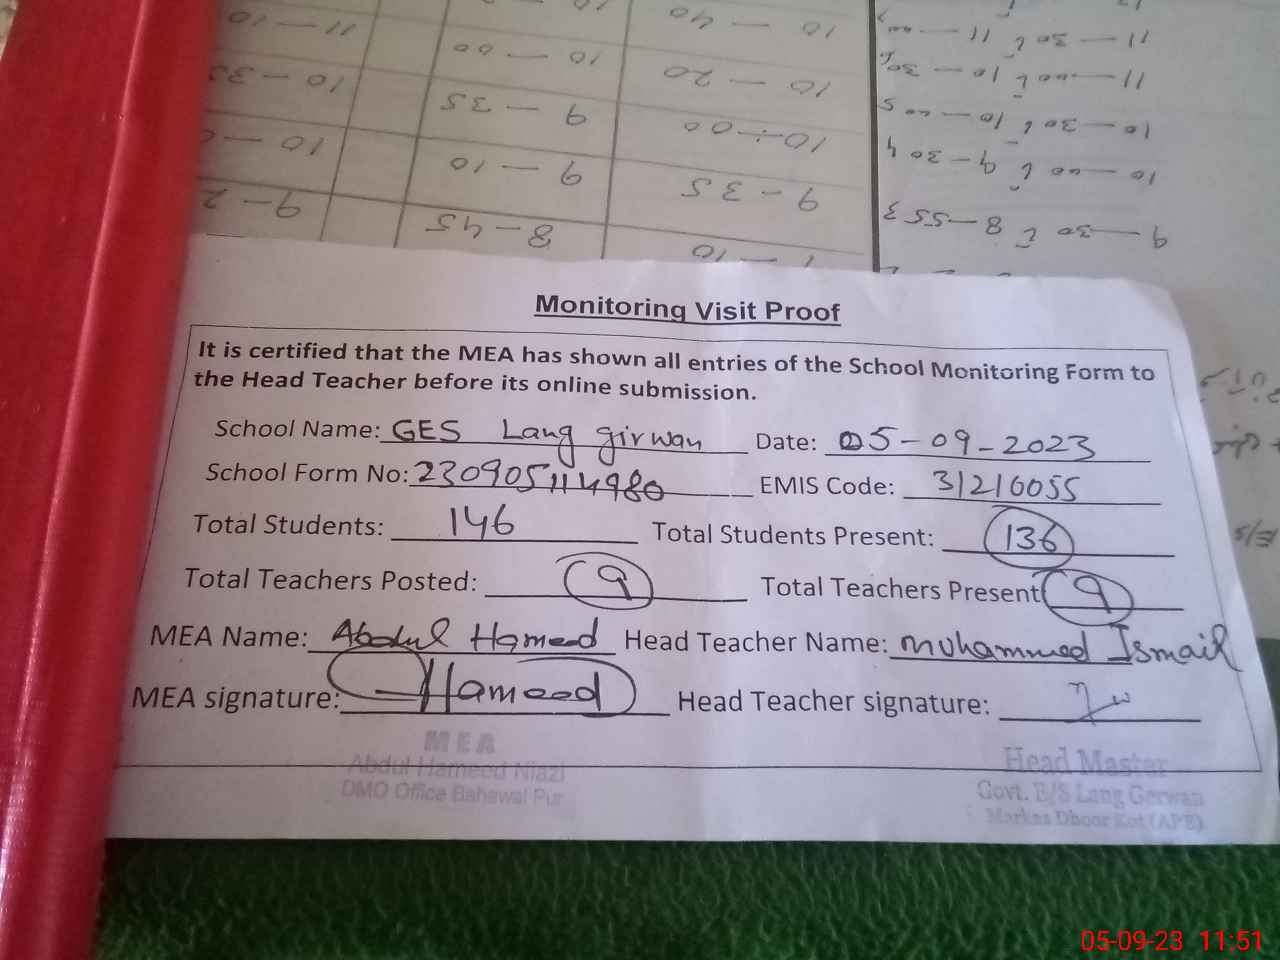 11 — 10
10 — 40
10 — 00
10 — 20
10 — 35
9 — 35
10 — 00
9 — 10
9 — 35
8 — 45
11 — 30 تا 11 — 00
11 — 00 تا 10 — 30 6
10 — 30 تا 10 — 00 5
10 — 00 تا 9 — 30 4
9 — 30 تا 8 — 55 3
Monitoring Visit Proof
It is certified that the MEA has shown all entries of the School Monitoring Form to
the Head Teacher before its online submission.
School Name: GES Lang girwan Date: 05-09-2023
School Form No: 230905114980 EMIS Code: 31216055
Total Students: 146 Total Students Present: 136
Total Teachers Posted: 9 Total Teachers Present 9
MEA Name: Abdul Hameed Head Teacher Name: Muhammed Ismail
MEA signature: Hameed Head Teacher signature:
MEA
Abdul Hameed Niazi
DMO Office Bahawal Pur
Head Master
Govt. E/S Lang Gerwan
Markaz Dhoor Kot (APE)
05-09-23 11:51